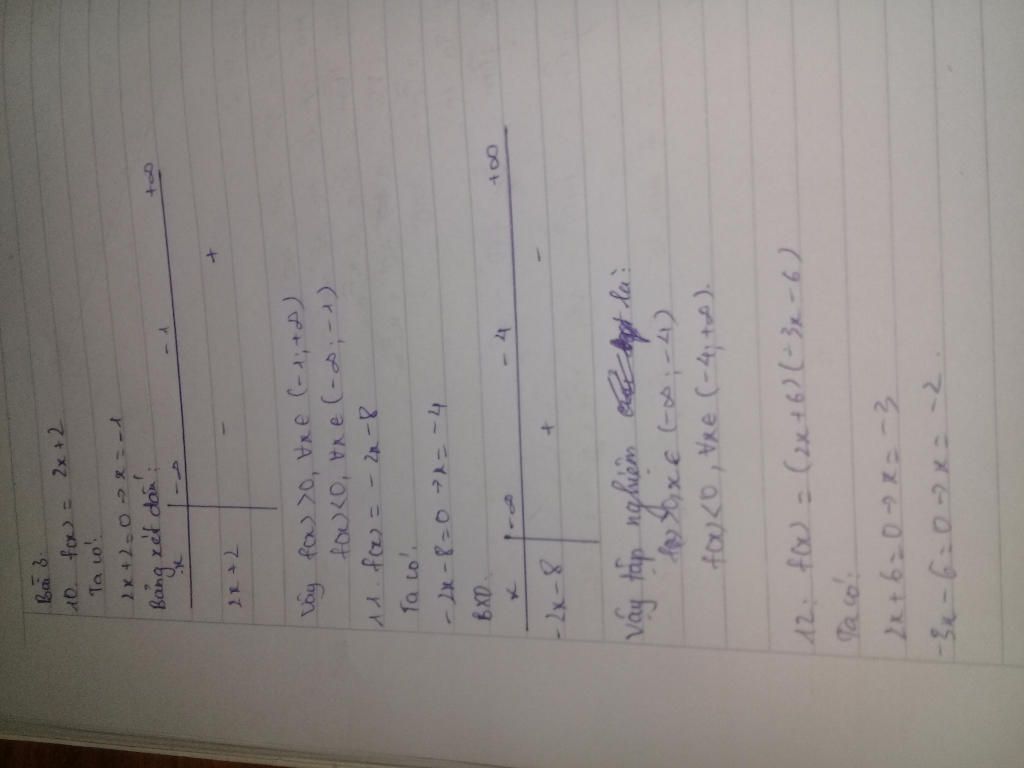 Bài 3
10. f(x) = 2x+2
Ta có:
2x+2=0 → x=-1
Bảng xét dấu:
x -∞ -1 +∞
2x+2 - +
Vậy f(x) >0, ∀x∈ (-1;+∞)
f(x) <0, ∀x∈ (-∞;-1)
11. f(x) = -2x-8
Ta có:
-2x-8=0 → x=-4
BXD.
x -∞ -4 +∞
-2x-8 + -
Vậy tập nghiệm là:
f(x)>0, x∈ (-∞;-4)
f(x)<0, ∀x∈ (-4;+∞).
12. f(x) = (2x+6)(-3x-6)
Ta có:
2x+6=0 → x=-3
-3x-6=0 → x=-2.